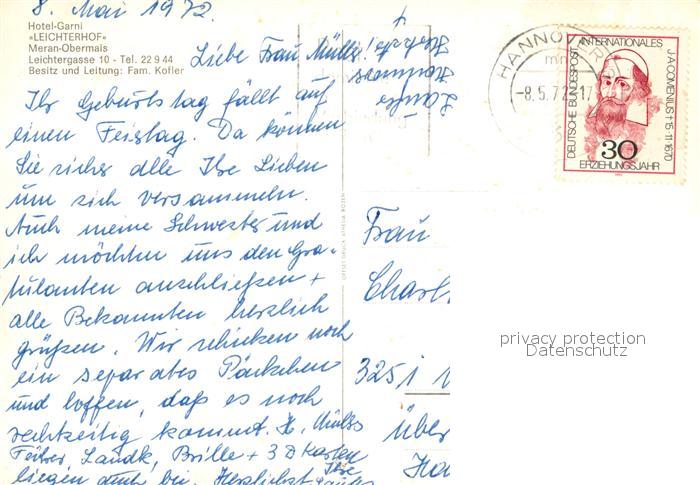 8. Mai 1972.
Hotel-Garni
»LEICHTERHOF«
Meran-Obermais
Leichtergasse 10 - Tel. 22 9 44
Besitz und Leitung: Fam. Kofler
Liebe Frau Müller!
Ihr Geburtstag fällt auf
einen Feiertag. Da können
Sie sicher alle Ihre Lieben
um sich versammeln.
Auch meine Schwester und
ich möchten uns den Gra-
tulanten anschließen +
alle Bekannten herzlich
grüßen. Wir schicken noch
ein separates Päckchen
und hoffen, daß es noch
rechtzeitig kommt. H. Müllers
Führer, Landk, Brille + 3 D Karten
liegen auch bei. Herzlichst Ihre
HANNOVER
mn
-8.5.72-17
INTERNATIONALES
DEUTSCHE BUNDESPOST
J·A·COMENIUS † 15·11·1670
30
ERZIEHUNGSJAHR
Frau
Charl
3251
über
Ha
privacy protection
Datenschutz